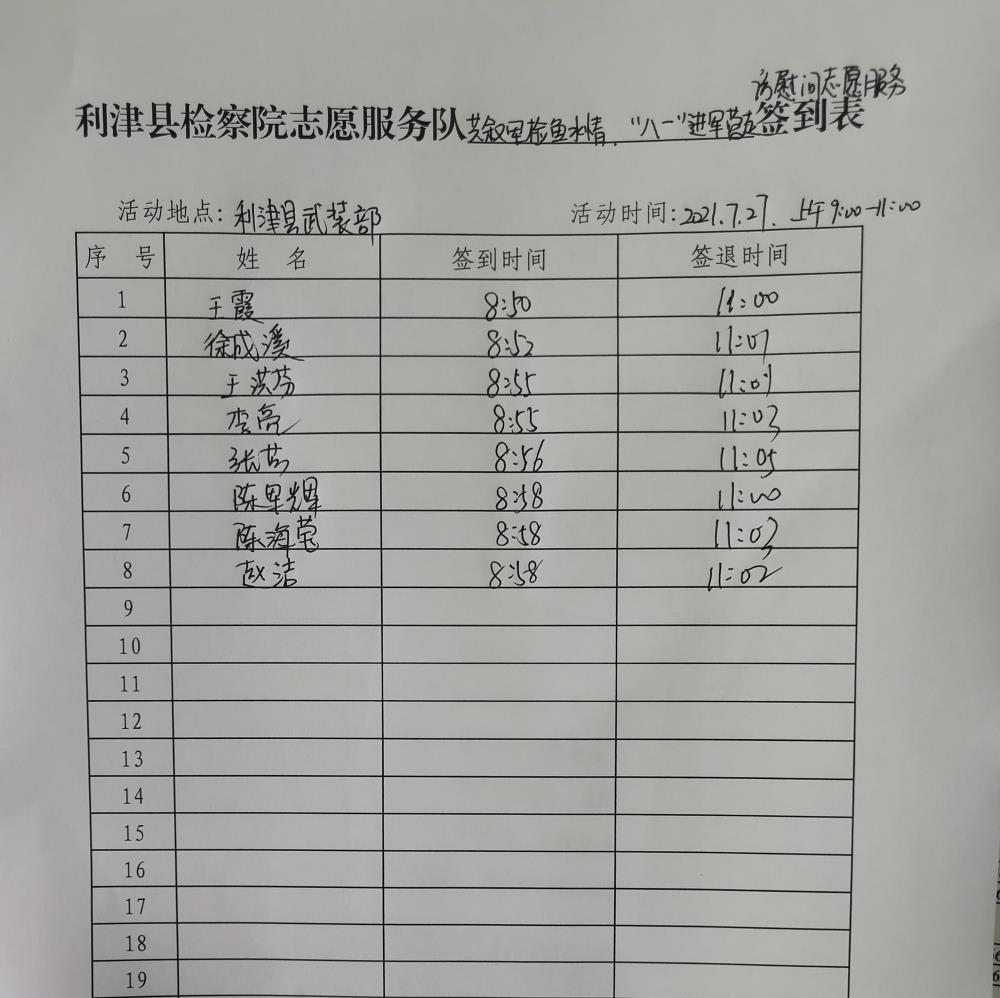 访慰问志愿服务
利津县检察院志愿服务队共叙军检鱼水情、"八一"进军营走签到表
活动地点:利津县武装部 活动时间:2021.7.27. 上午9:00-11:00
序 号 姓 名 签到时间 签退时间
1 王霞 8:50 11:00
2 徐成溪 8:52 11:07
3 王洪芬 8:55 11:01
4 李亮 8:55 11:03
5 张芳 8:56 11:05
6 陈军辉 8:58 11:00
7 陈海莹 8:58 11:03
8 赵洁 8:58 11:02
9
10
11
12
13
14
15
16
17
18
19